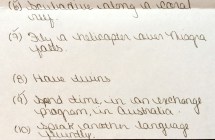 (6) Scubadive along a coral
reef.
(7) Fly a helicopter over Niagra
falls.
(8) Have twins
(9) Spend time in an exchange
program, in Australia.
(10) Speak another language
fluently.